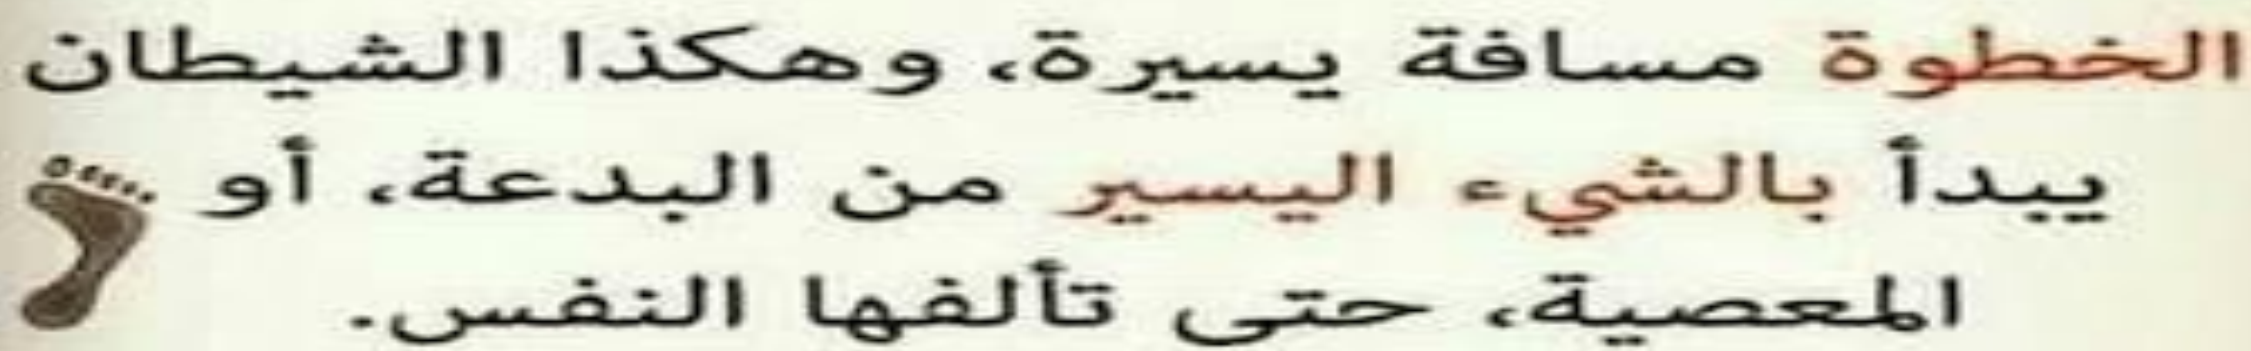 الخطوة مسافة يسيرة، وهكذا الشيطان
يبدأ بالشيء اليسير من البدعة، أو
المعصية، حتى تألفها النفس.